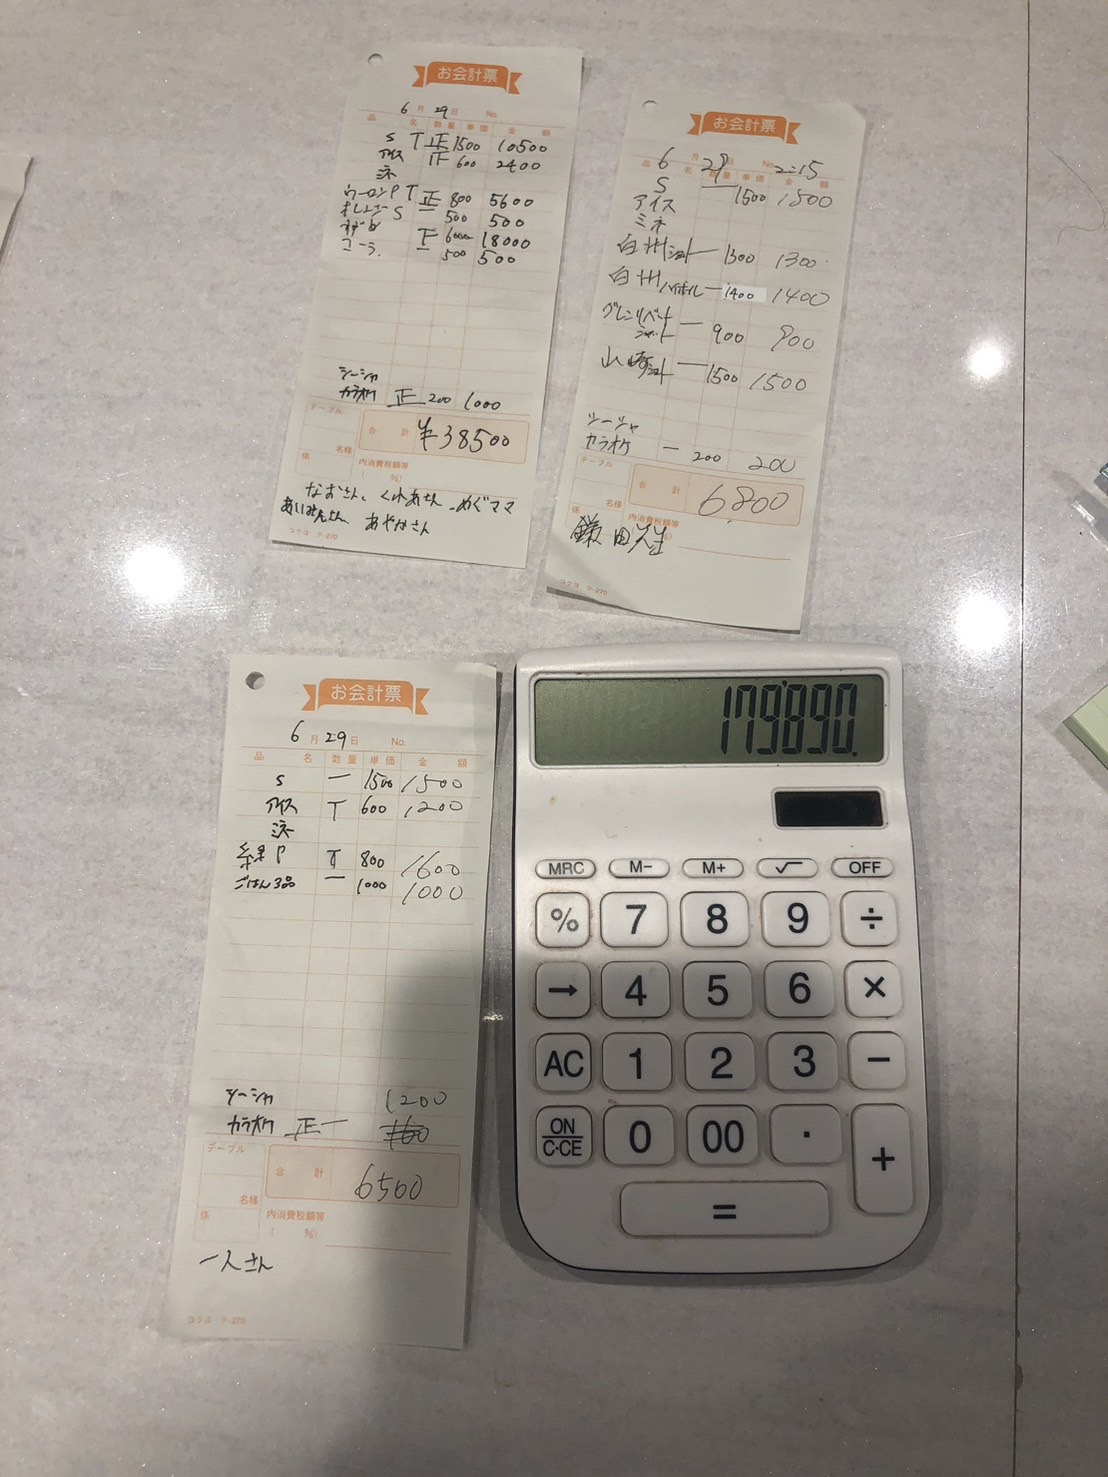 お会計票
6月29日 No.
品 名 数量 単価 金 額
S T正 1500 10500
アイス 正 600 2400
ミネ
ウーロンP T正 800 5600
オレンジS 一 500 500
6000 18000
コーラ. 一 500 500
シーシャ
カラオケ 正 200 1000
テーブル
合 計 ¥38500
係 名様
内消費税額等
%)
なおさん、くれあさん めぐママ
あいみんさん あやなさん
コクヨ テ-270
お会計票
6月29日 No. 2:15
品 名 数量 単価 金 額
S 一 1500 1500
アイス
ミネ
白州ショット 一 1300 1300
白州ハイボール 一 1400 1400
グレンリベット
ショット 一 900 900
山崎ショット 一 1500 1500
シーシャ
カラオケ 一 200 200
テーブル
合 計 6800
係 名様
内消費税額等
%)
鎌田先生
コクヨ テ-270
お会計票
6月29日 No.
品 名 数量 単価 金 額
S 一 1500 1500
アイス T 600 1200
ミネ
緑P T 800 1600
ごはん3品 一 1000 1000
シーシャ 1200
カラオケ 正一
テーブル
合 計 6500
名様
係
内消費税額等
( %)
一人さん
コクヨ テ-270
179'890.
MRC M- M+ √ OFF
% 7 8 9 ÷
→ 4 5 6 ×
AC 1 2 3 −
ON
C·CE 0 00 · +
=